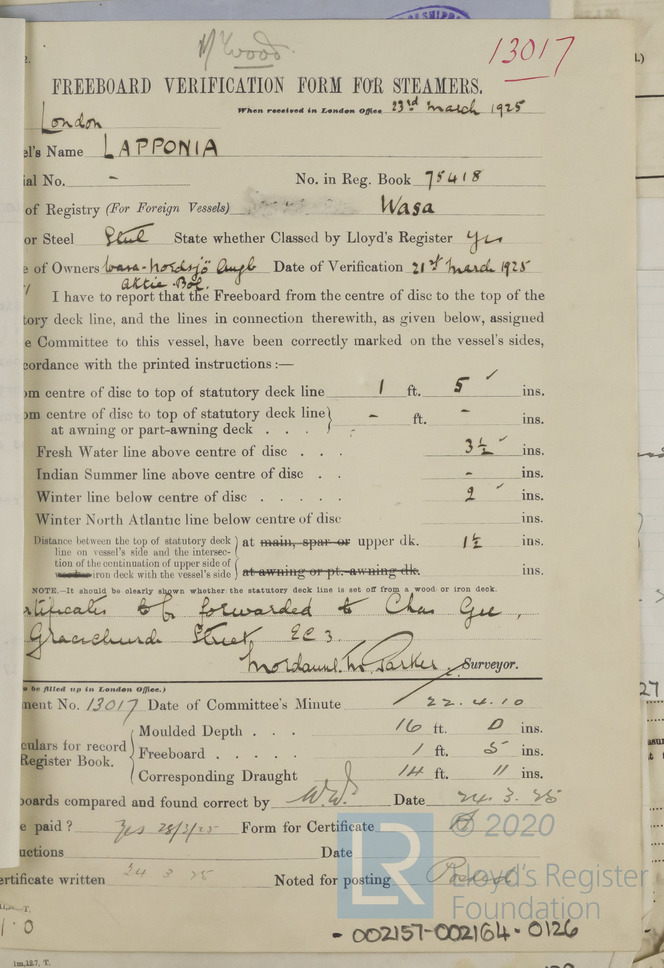 Mr Wood
13017
FREEBOARD VERIFICATION FORM FOR STEAMERS.
When received in London Office 23rd March 1925
London
el's Name LAPPONIA
ial No. - No. in Reg. Book 75418
of Registry (For Foreign Vessels) Wasa
or Steel Steel State whether Classed by Lloyd's Register Yes
e of Owners Wasa-Nordsjö Angb Date of Verification 21st March 1925
Aktie-Bol.
I have to report that the Freeboard from the centre of disc to the top of the
tory deck line, and the lines in connection therewith, as given below, assigned
e Committee to this vessel, have been correctly marked on the vessel's sides,
cordance with the printed instructions :—
om centre of disc to top of statutory deck line 1 ft. 5 ✓ ins.
om centre of disc to top of statutory deck line
at awning or part-awning deck . . . - ft. - ins.
Fresh Water line above centre of disc . . . 3½ ✓ ins.
Indian Summer line above centre of disc . . - ins.
Winter line below centre of disc . . . . . 2 ✓ ins.
Winter North Atlantic line below centre of disc ins.
Distance between the top of statutory deck
line on vessel's side and the intersec-
tion of the continuation of upper side of
wooden iron deck with the vessel's side
at main, spar or upper dk. 1½ ins.
at awning or pt. awning dk. ins.
NOTE.—It should be clearly shown whether the statutory deck line is set off from a wood or iron deck.
rtificates to be forwarded to Chas Gee,
Gracechurch Street, EC 3.
Mordaunt M. Parker. Surveyor.
o be filled up in London Office.)
ment No. 13017 Date of Committee's Minute 22.4.10
culars for record
Register Book.
Moulded Depth . . . 16 ft. 0 ins.
Freeboard . . . . . 1 ft. 5 ins.
Corresponding Draught 14 ft. 11 ins.
boards compared and found correct by W.W. Date 24.3.25
e paid ? Yes 23/3/25 Form for Certificate
uctions Date
ertificate written 24 3 25 Noted for posting Posted
© 2020
LR
Lloyd's Register
Foundation
1.0
- 002157-002164-0126
1m,12.7, T.
27